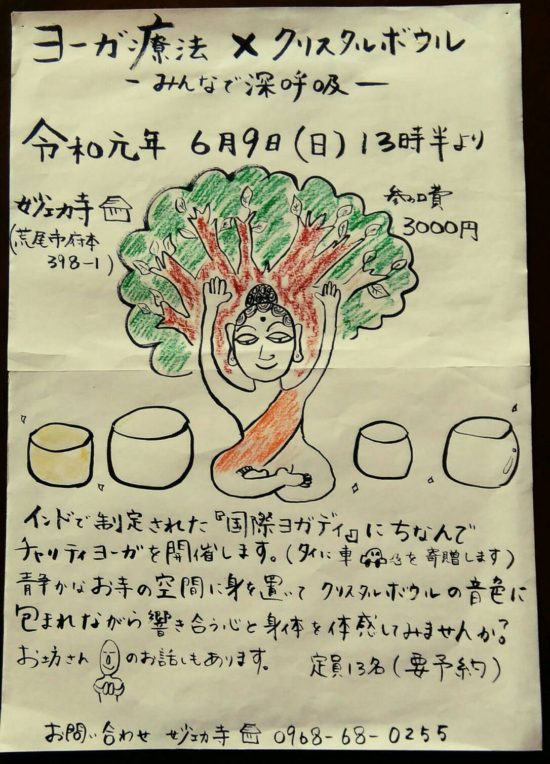 ヨーガ療法 × クリスタルボウル
ーみんなで深呼吸ー
令和元年 6月9日(日) 13時半より
妙ェカ寺
(荒尾市府本
398-1)
参加費
3000円
インドで制定された『国際ヨガディ』にちなんで
チャリティヨーガを開催します。(タイに車を寄贈します)
静かなお寺の空間に身を置いて クリスタルボウルの音色に
包まれながら響き合う心と身体を体感してみませんか?
お坊さんのお話しもあります。 定員13名(要予約)
お問い合わせ 妙ェカ寺 0968-68-0255